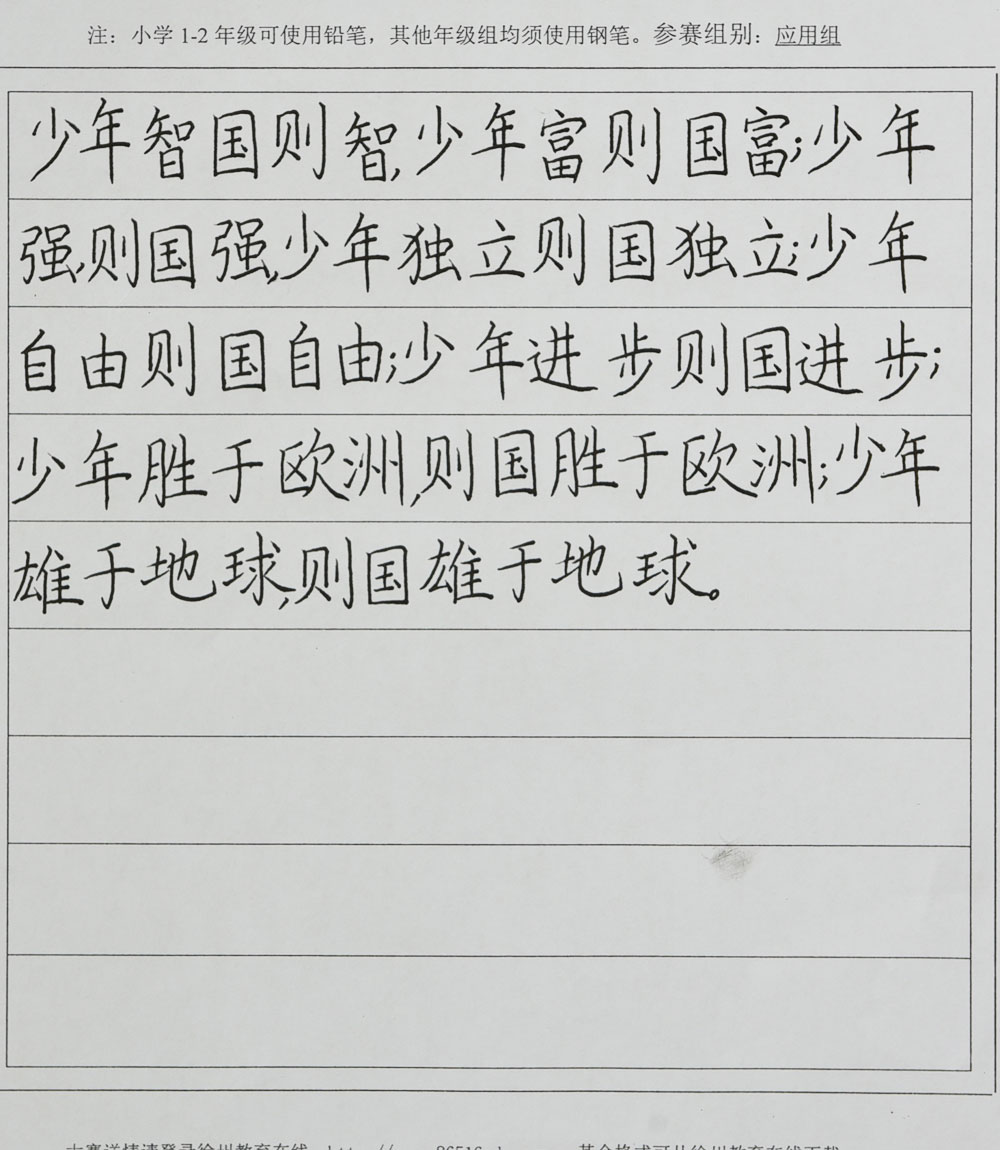 注：小学 1-2 年级可使用铅笔，其他年级组均须使用钢笔。参赛组别：应用组
少年智国则智,少年富则国富;少年
强,则国强,少年独立则国独立;少年
自由则国自由;少年进步则国进步;
少年胜于欧洲,则国胜于欧洲;少年
雄于地球,则国雄于地球。